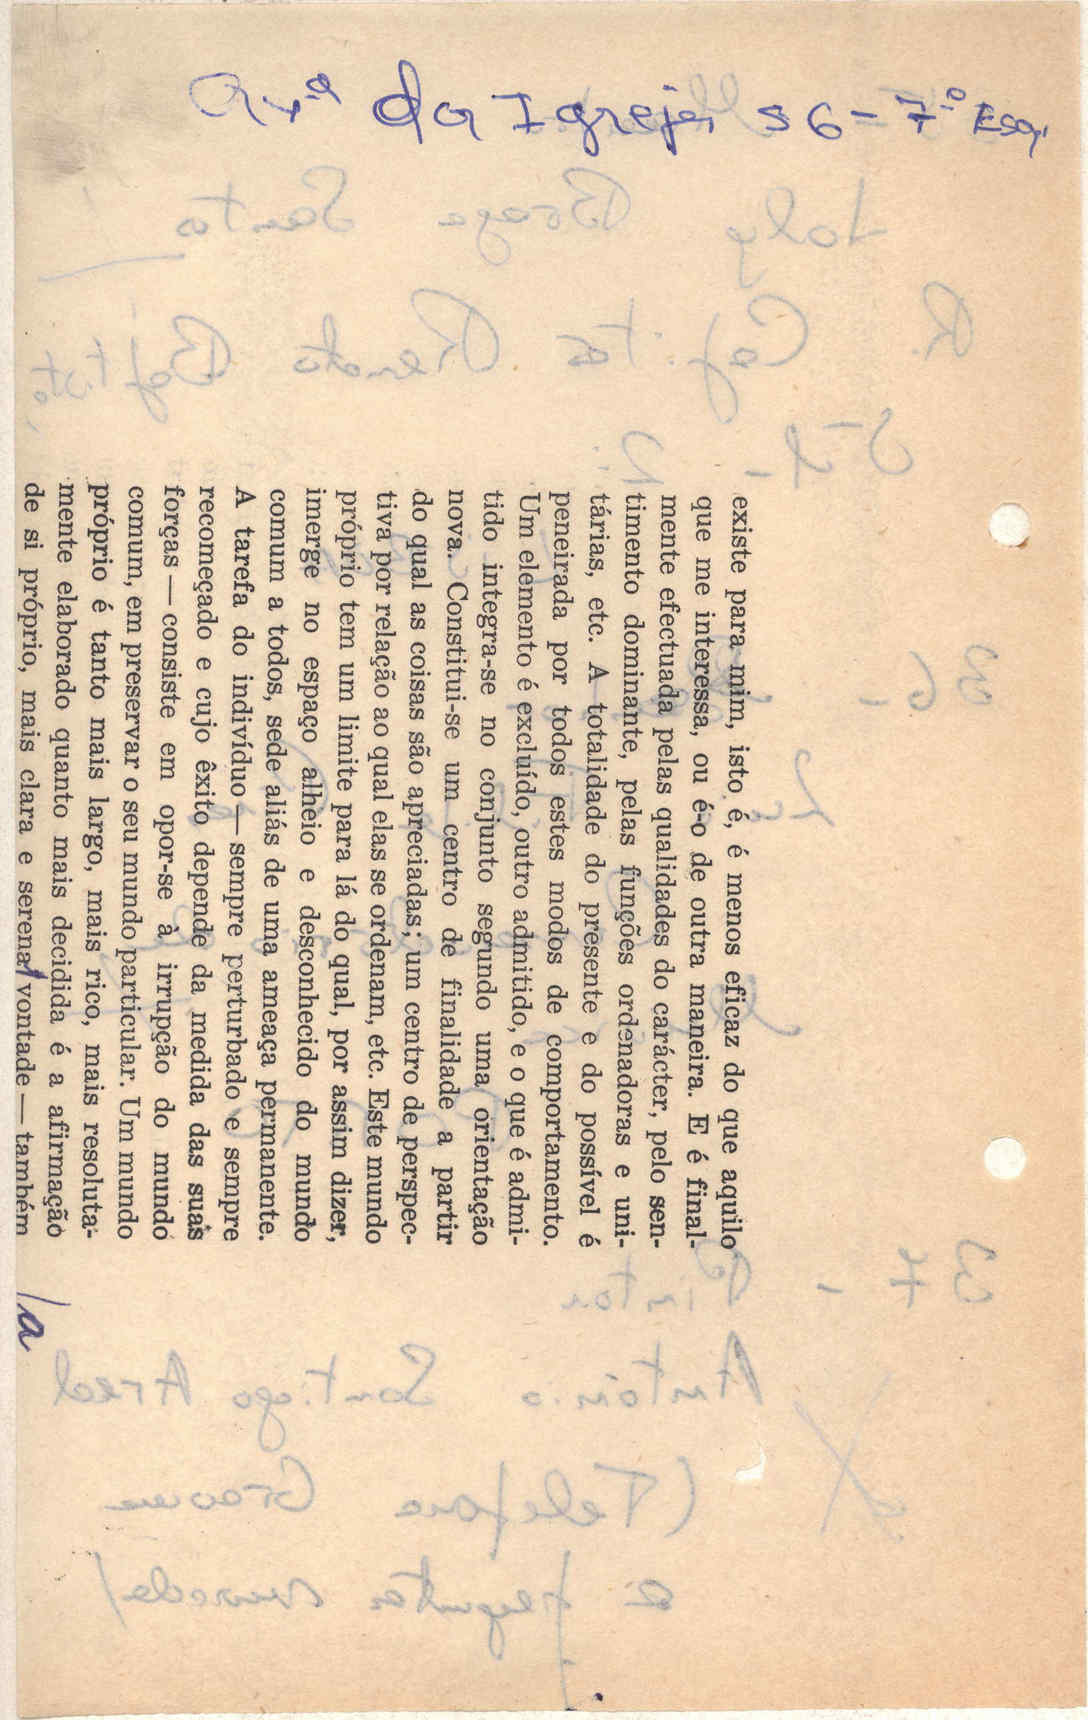 Avª da Igreja, 56-7º Esq
existe para mim, isto é, é menos eficaz do que aquilo
que me interessa, ou é-o de outra maneira. E é final-
mente efectuada pelas qualidades do carácter, pelo sen-
timento dominante, pelas funções ordenadoras e uni-
tárias, etc. A totalidade do presente e do possível é
peneirada por todos estes modos de comportamento.
Um elemento é excluído, outro admitido, e o que é admi-
tido integra-se no conjunto segundo uma orientação
nova. Constitui-se um centro de finalidade a partir
do qual as coisas são apreciadas; um centro de perspec-
tiva por relação ao qual elas se ordenam, etc. Este mundo
próprio tem um limite para lá do qual, por assim dizer,
imerge no espaço alheio e desconhecido do mundo
comum a todos, sede aliás de uma ameaça permanente.
A tarefa do indivíduo — sempre perturbado e sempre
recomeçado e cujo êxito depende da medida das suas
forças — consiste em opor-se à irrupção do mundo
comum, em preservar o seu mundo particular. Um mundo
próprio é tanto mais largo, mais rico, mais resoluta-
mente elaborado quanto mais decidida é a afirmação
de si próprio, mais clara e serena vontade — também
/a
Joly Braga Santos
R. Capitão Renato Baptista
36 -
37 - Pintor
António Santiago Areal
(Telefone